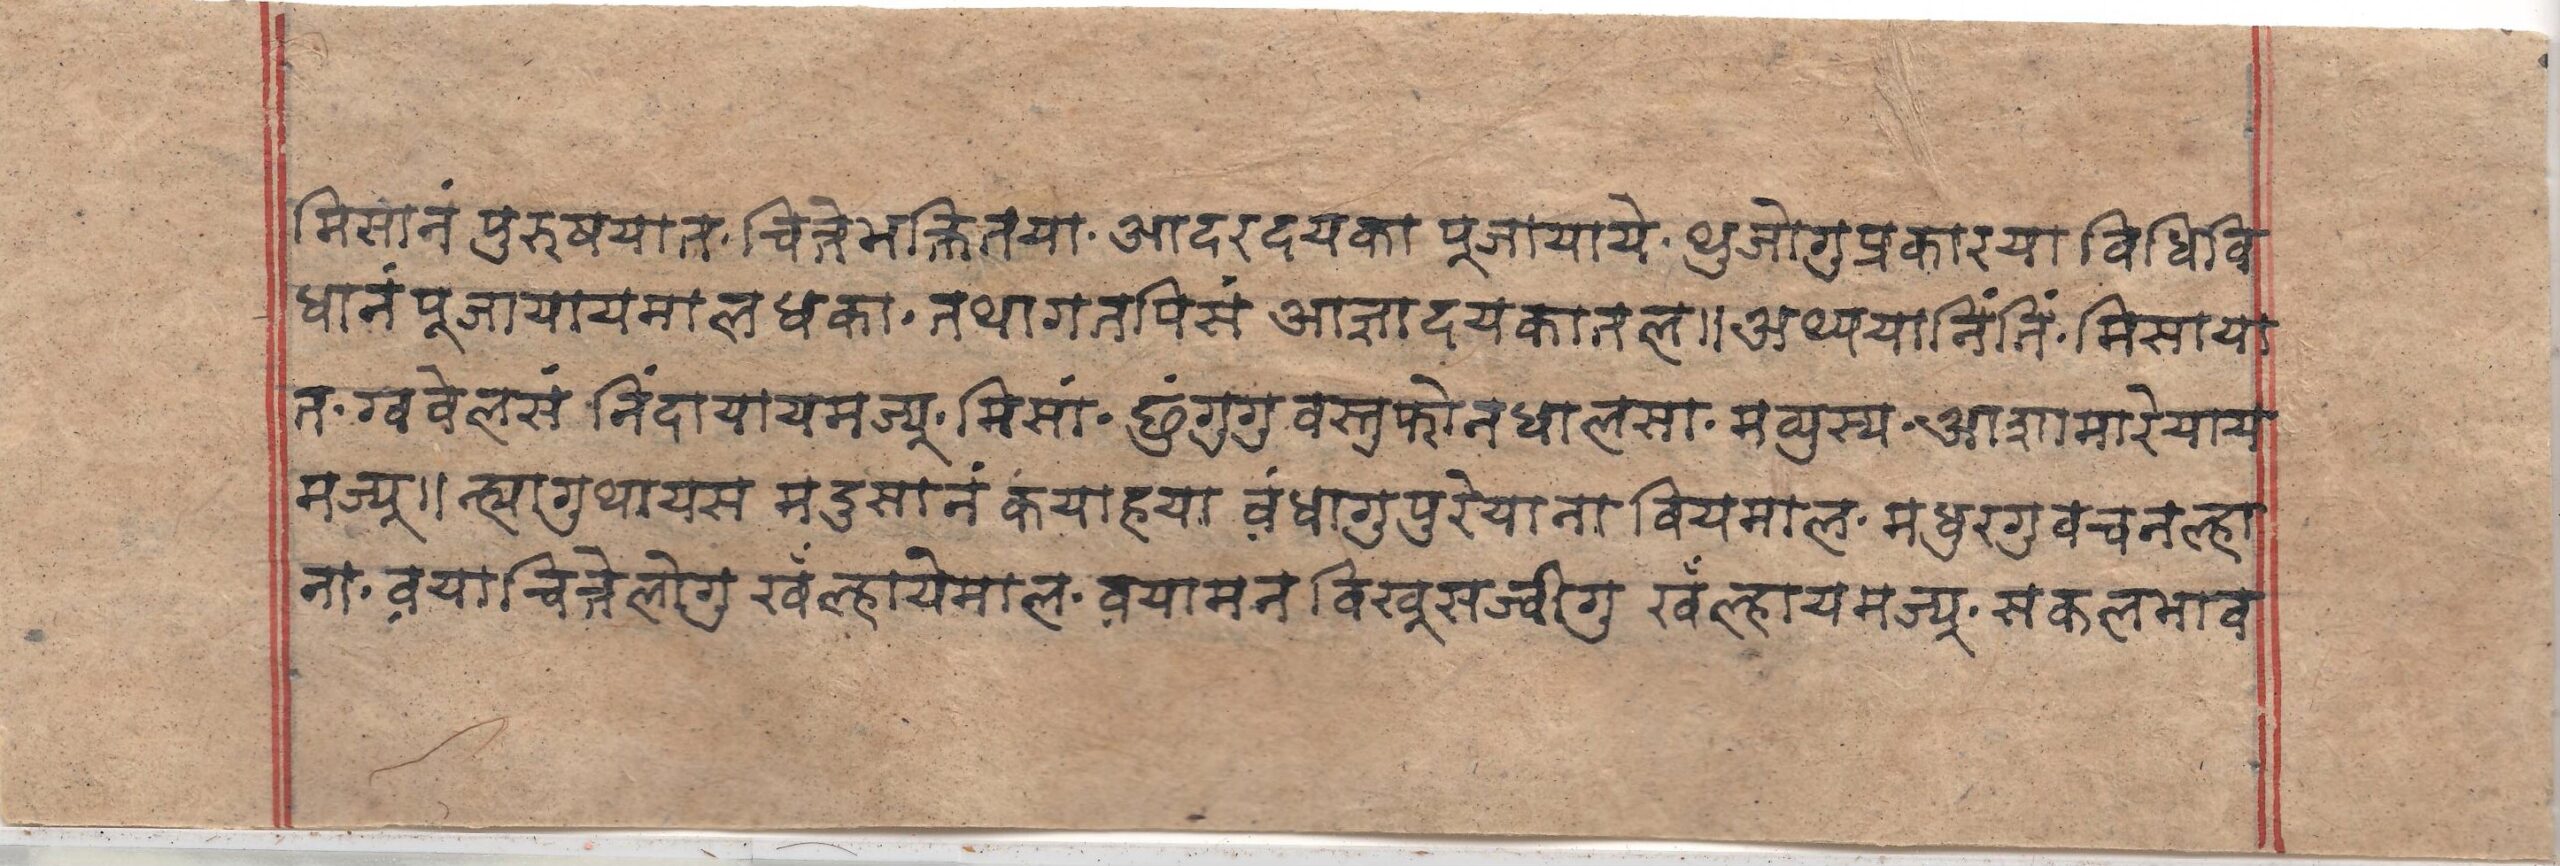 मिसानं पुरुषयात· चित्तेभक्तितया· आदरदयका पूजायाये· थुजोगुप्रकारया विधिवि
धानं पूजायायमाल धका· तथागतपिसं आज्ञादयकातल॥ अथ्ययानिंतिं· मिसाया
त· ग्ववेलसं निंदायायमज्यू· मिसां· छुंगुगु वस्तुफोन धालसा· मव्युस्य· आज्ञामारेयाय
मज्यू॥ न्ह्यागुथायस मदुसानं कयाहया वं़धागु पुरेयाना वियमाल· मधुरगु वचनल्हा
ना· व़याचित्तेलोगु खँल्हायेमाल· व़यामन विखुसज्वीगु खँल्हायमज्यू· सकलभाव